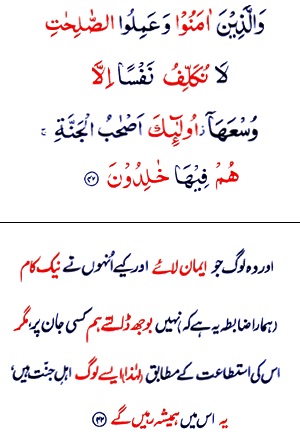 وَالَّذِيْنَ اٰمَنُوْا وَعَمِلُوا الصّٰلِحٰتِ
لَا نُكَلِّفُ نَفْسًا اِلَّا
وُسْعَهَاۤ ز اُولٰٓئِكَ اَصْحٰبُ الْجَنَّةِ ۚ
هُمْ فِيْهَا خٰلِدُوْنَ ﴿۴۲﴾
اور وہ لوگ جو ایمان لائے اور کیے اُنہوں نے نیک کام
(ہمارا ضابطہ یہ ہے کہ) نہیں بوجھ ڈالتے ہم کسی جان پر، مگر
اس کی استطاعت کے مطابق (لہٰذا) ایسے لوگ اہلِ جنّت ہیں،
یہ اس میں ہمیشہ رہیں گے ﴿۴۲﴾